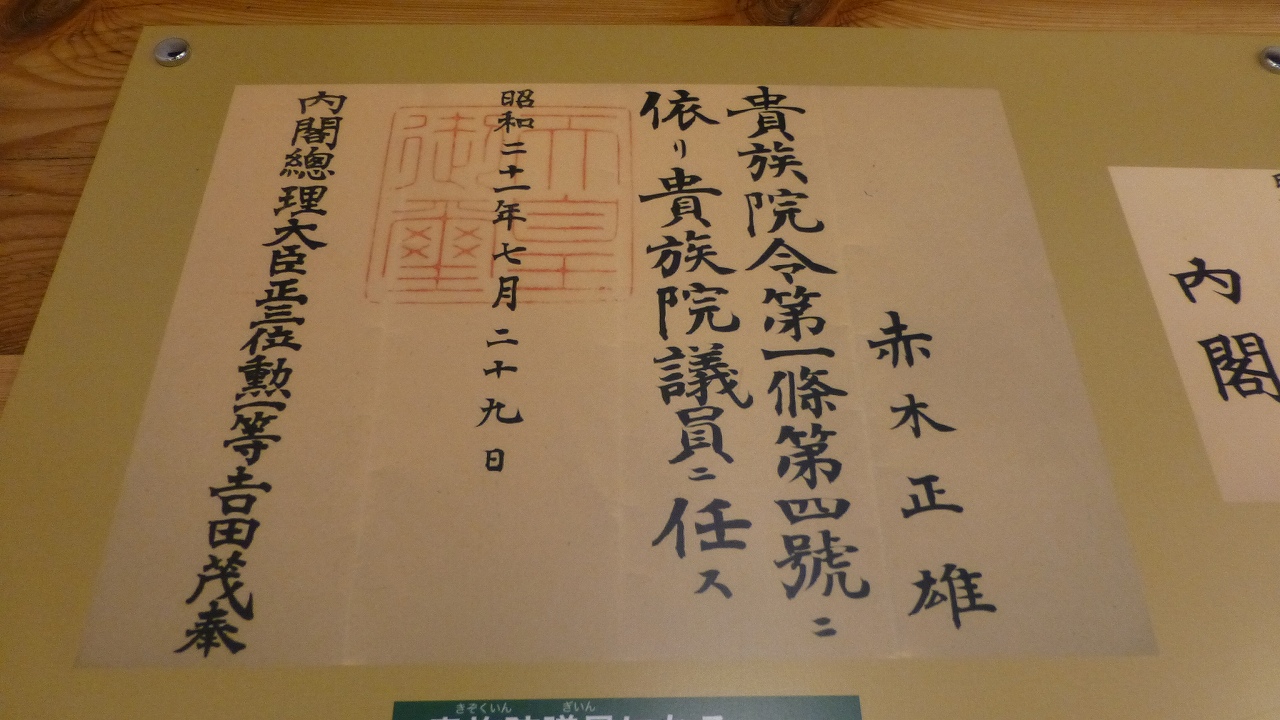 赤木正雄
貴族院令第一條第四號ニ
依リ貴族院議員ニ任ス
昭和二十一年七月二十九日
天皇御璽
内閣總理大臣正三位勲一等吉田茂奉
内閣
きぞくいん ぎいん